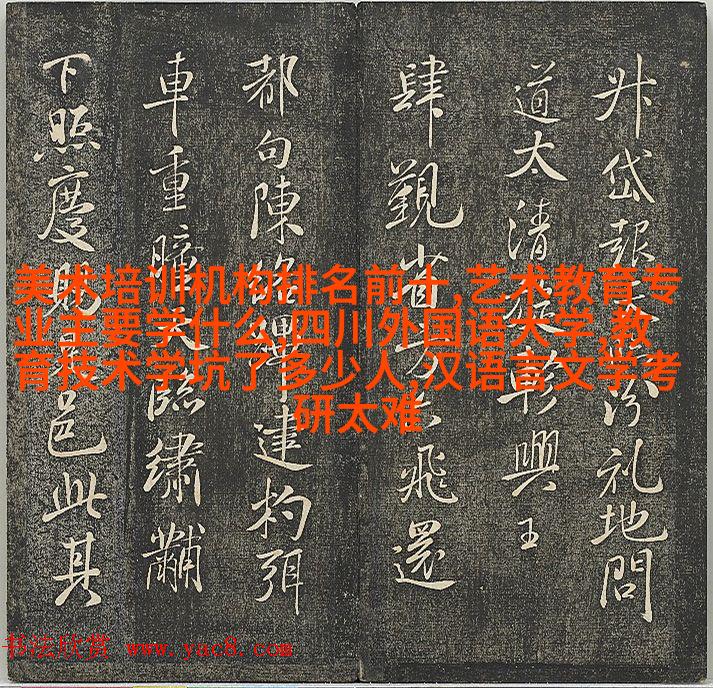 升岱報汾礼地問
道太清軫興王
肆覲省飛還
都句陳建杓弭
車重臨繡黼
下照慶邑此其
美术培训机构排名前十,艺术教育专
业主要学什么,四川外国语大学,教
育技术学坑了多少人,汉语言文学考
研太难
书法欣赏 www.yac8.com